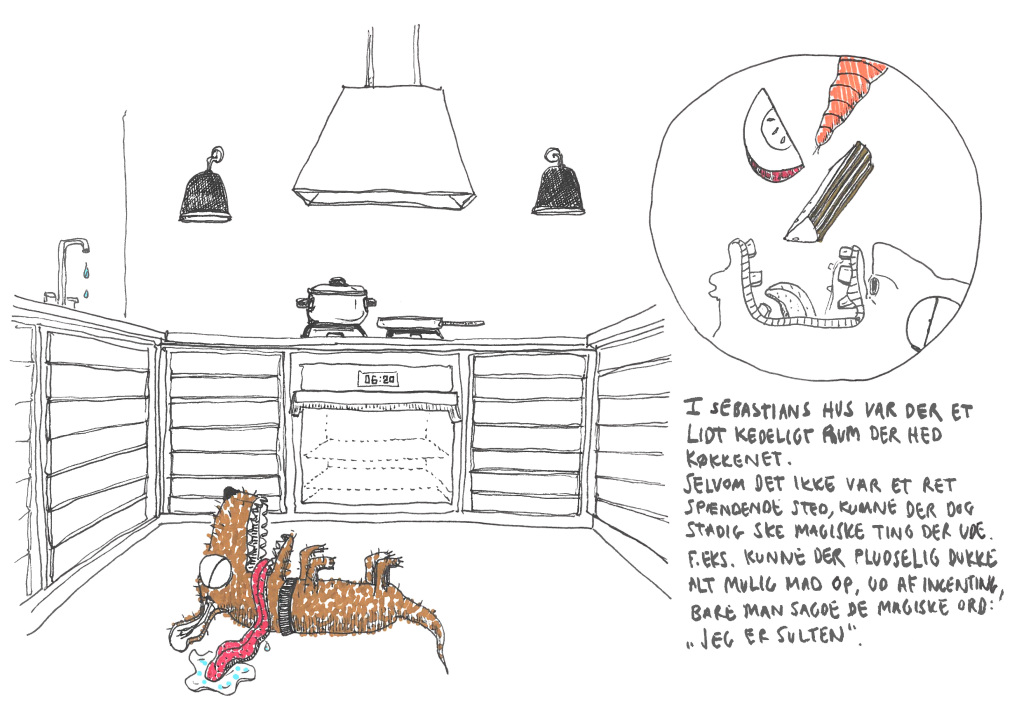 06:20
I SEBASTIANS HUS VAR DER ET
LIDT KEDELIGT RUM DER HED
KØKKENET.
SELVOM DET IKKE VAR ET RET
SPÆNDENDE STED, KUNNE DER DOG
STADIG SKE MAGISKE TING DER UDE.
F.EKS. KUNNE DER PLUDSELIG DUKKE
ALT MULIG MAD OP, UD AF INGENTING,
BARE MAN SAGDE DE MAGISKE ORD:
„JEG ER SULTEN".